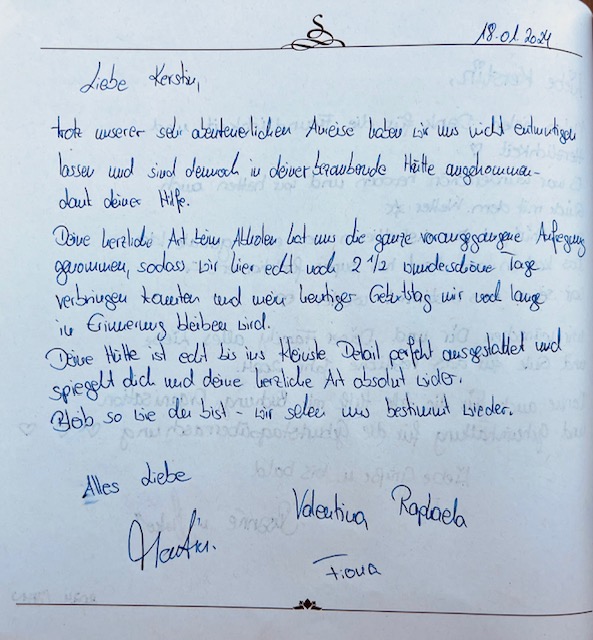 18.01.2024
Liebe Kerstin,
trotz unserer sehr abenteuerlichen Anreise haben wir uns nicht entmutigen
lassen und sind dennoch in deiner bezaubernde Hütte angekommen -
dank deiner Hilfe.
Deine herzliche Art beim Abholen hat uns die ganze vorausggangene Aufregung
genommen, sodass wir hier echt noch 2 1/2 wunderschöne Tage
verbringen konnten und mein heutiger Geburtstag mir noch lange
in Erinnerung bleiben wird.
Deine Hütte ist echt bis ins kleinste Detail perfekt ausgestattet und
spiegelt dich und deine herzliche Art absolut wider.
Bleib so wie du bist - wir sehen uns bestimmt wieder.
Alles Liebe
Valentina Raphaela
Martin.
Fiona